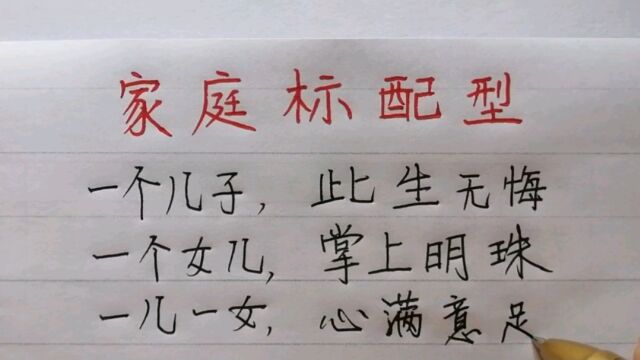 家庭标配型
一个儿子，此生无悔
一个女儿，掌上明珠
一儿一女，心满意足